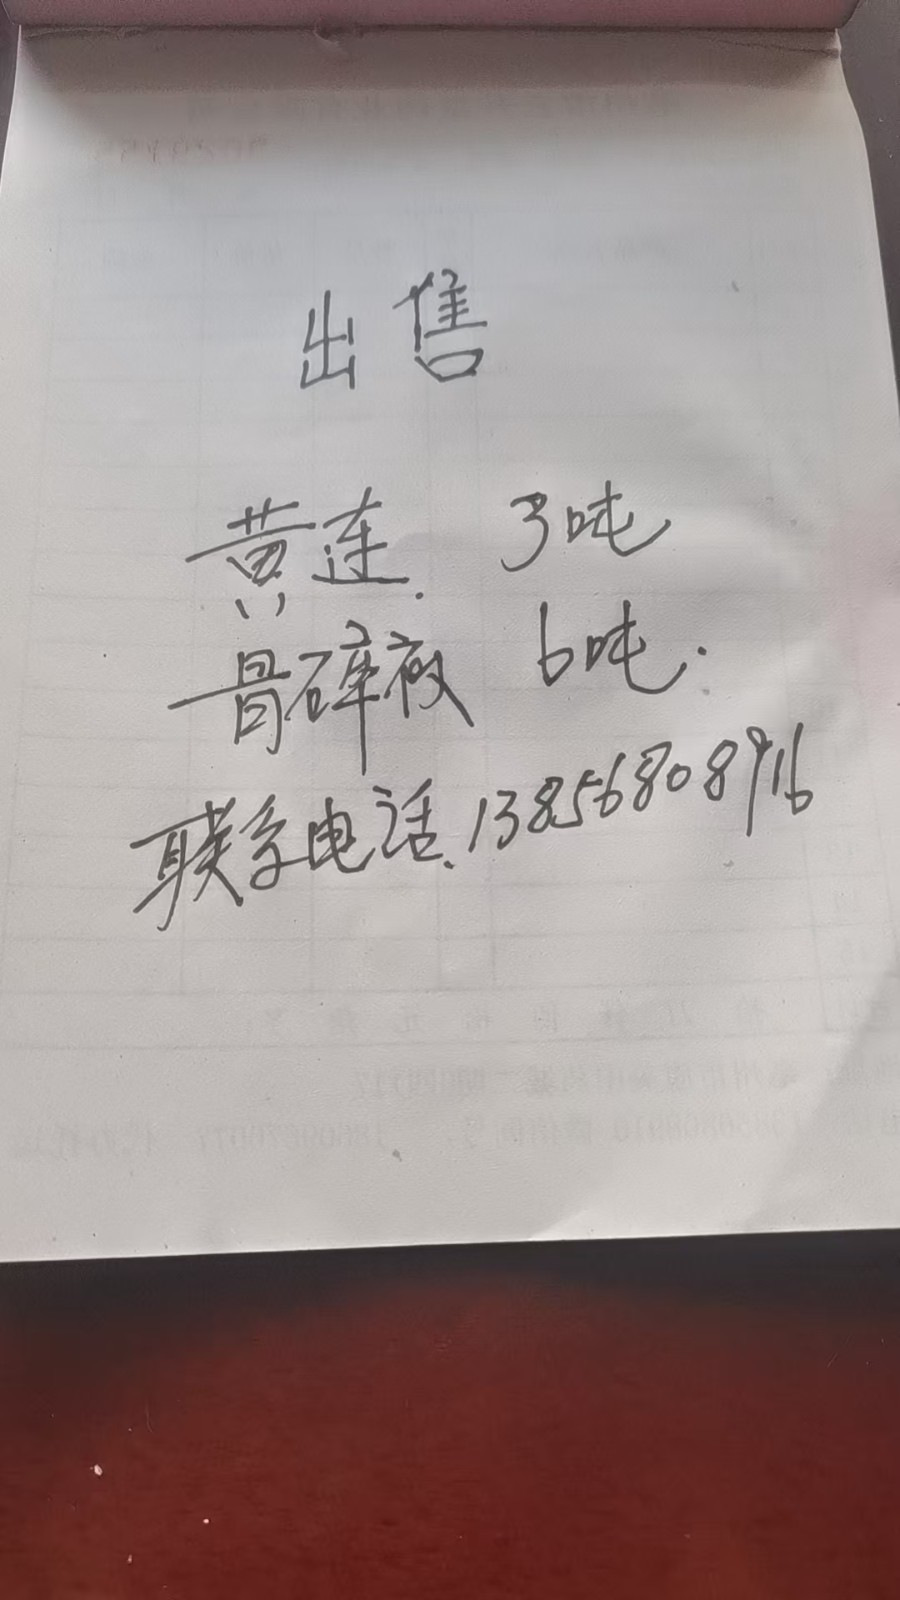 出售
黄连. 3吨
骨碎被 6吨.
联系电话.13856808916